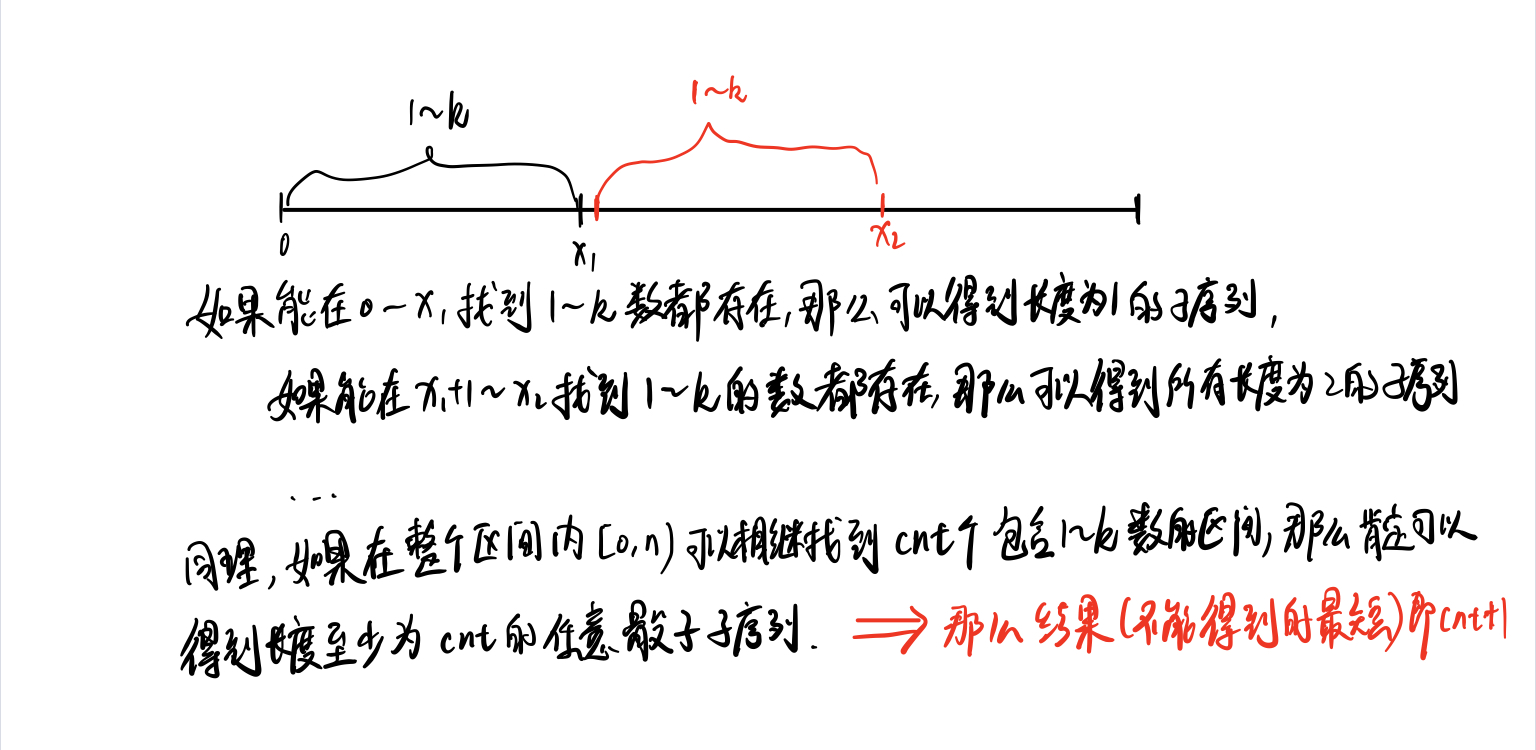 1~k
1~k
0
x₁
x₂
如果能在0~x₁找到1~k数都存在,那么可以得到长度为1的子序列,
如果能在x₁+1~x₂找到1~k的数都存在,那么可以得到所有长度为2的子序列
...
同理,如果在整个区间内[0,n)可以相继找到cnt个包含1~k数的区间,那么肯定可以
得到长度至少为cnt的任意骰子子序列. ⟹ 那么结果(不能得到的最短)即cnt+1